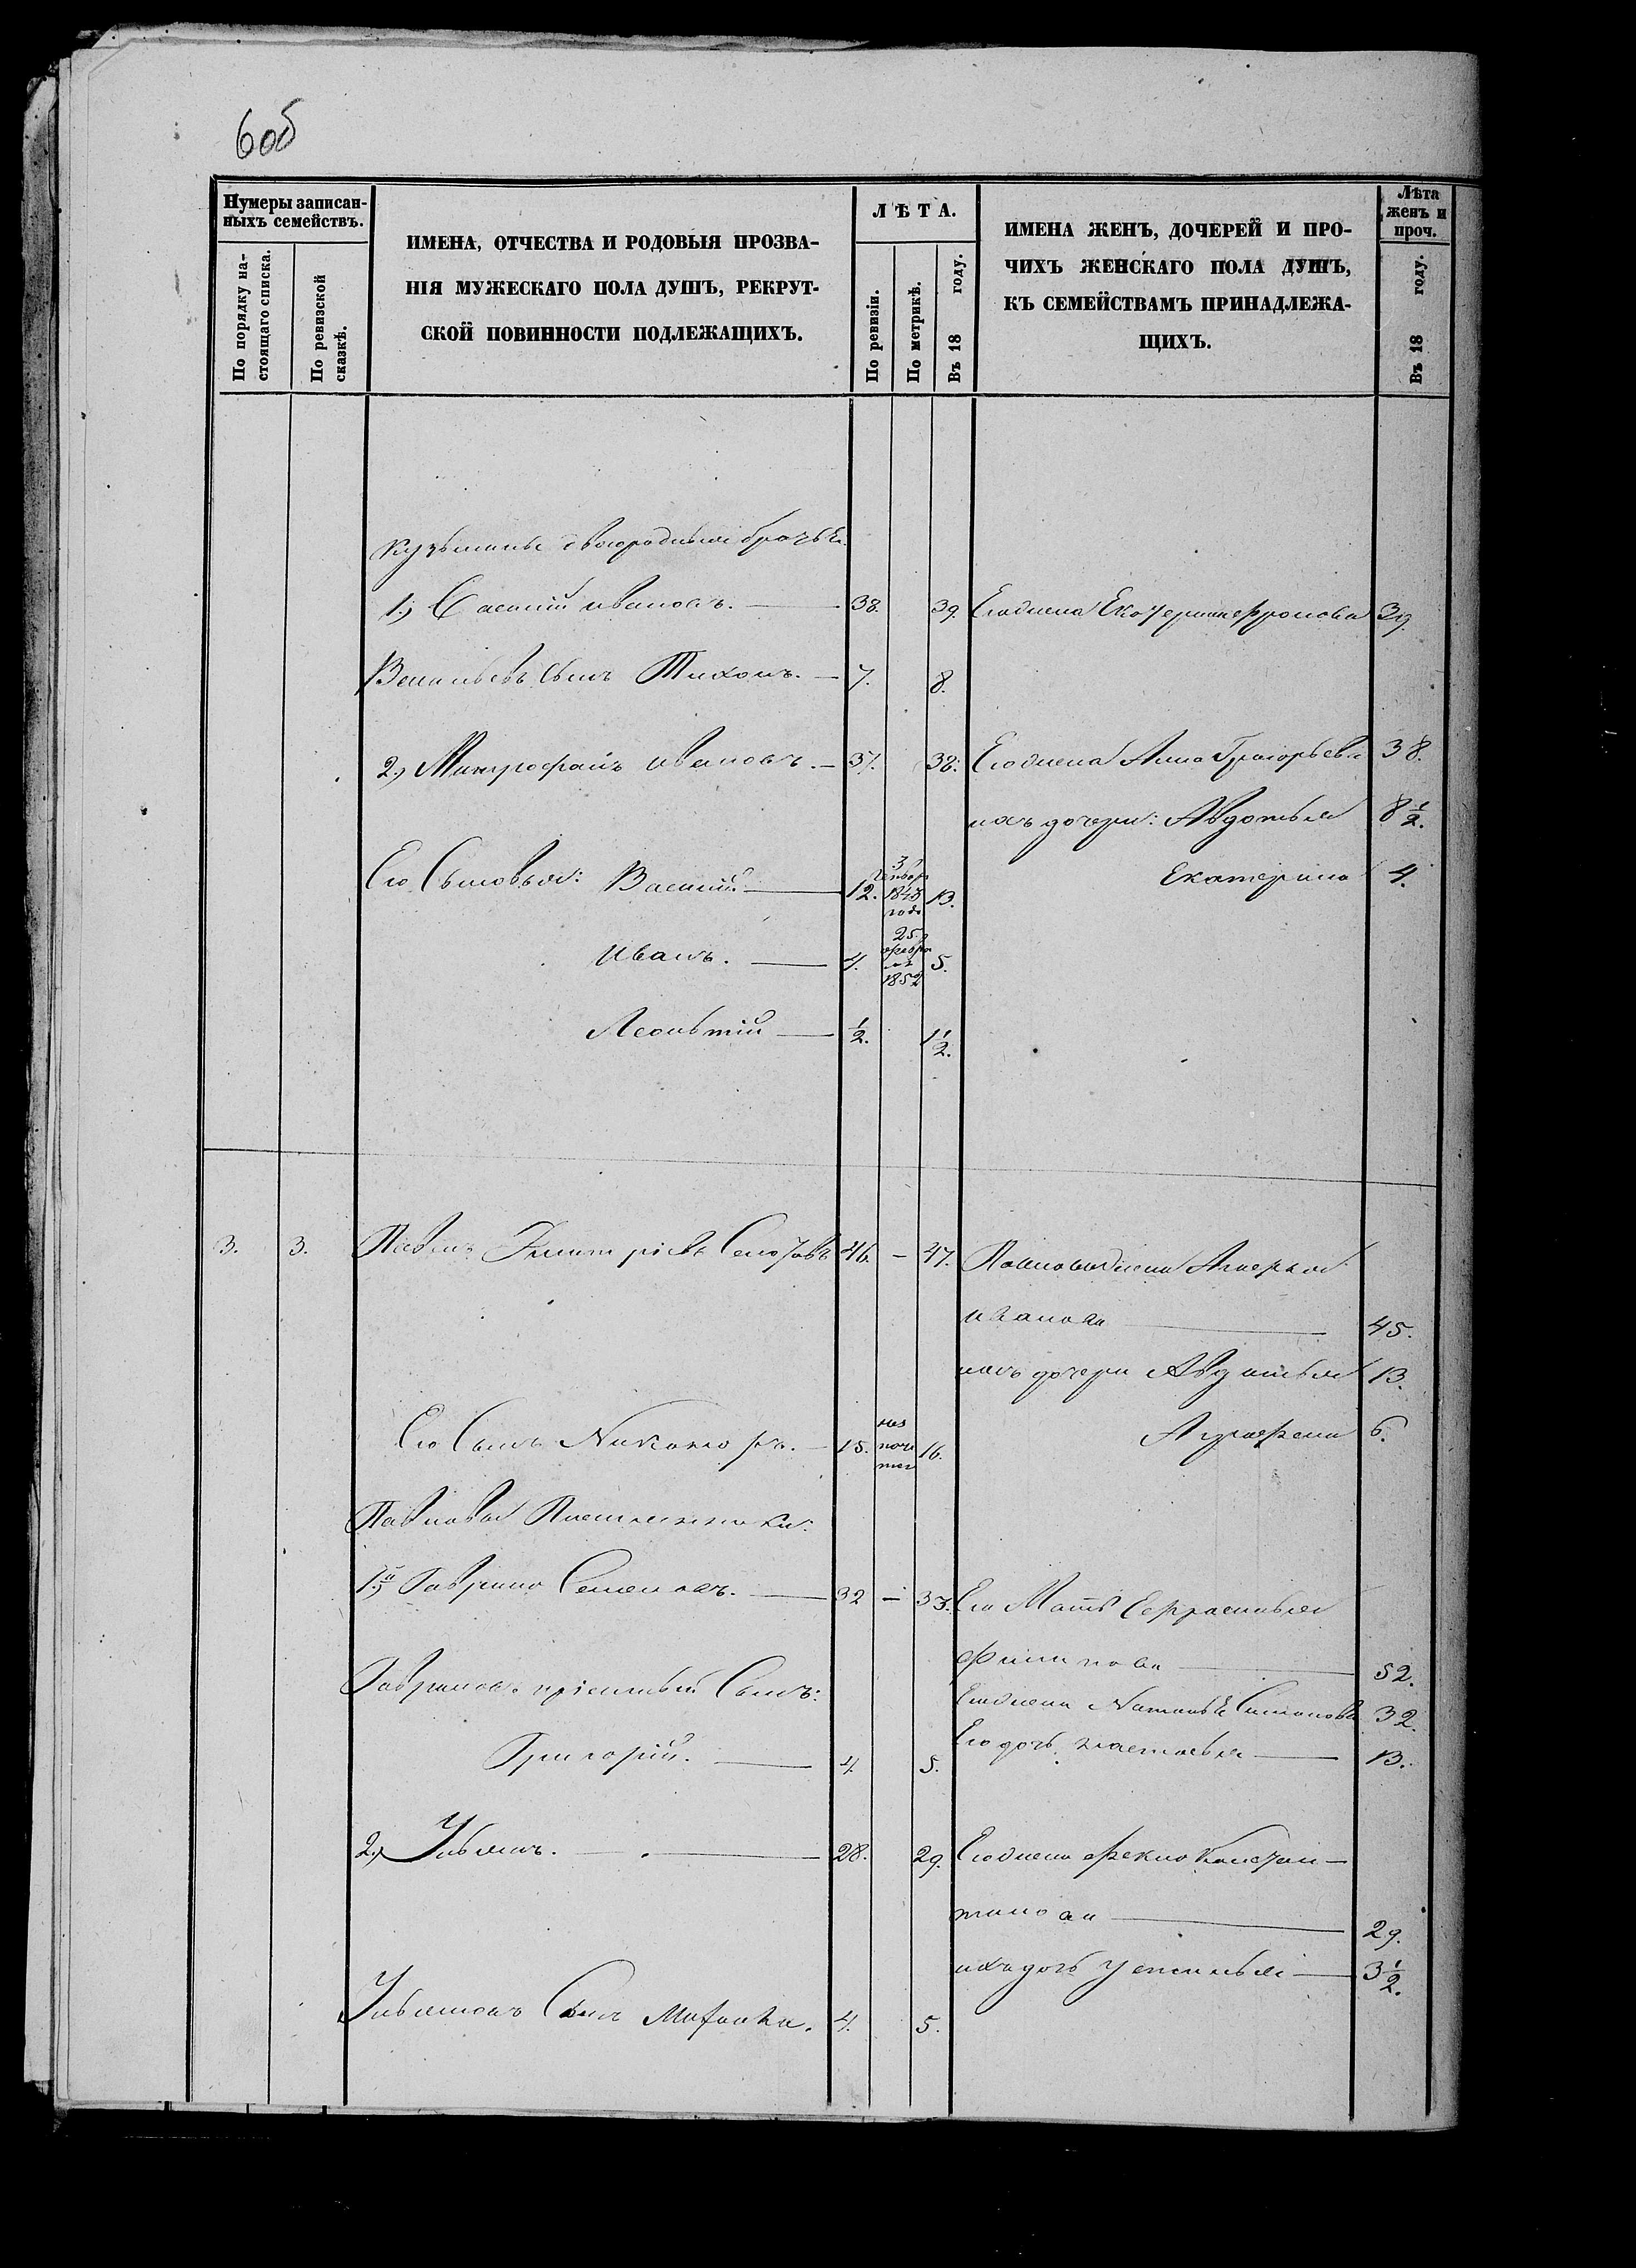 6об
Нумеры записан-
ныхъ семействъ.
По порядку на-
стоящаго списка.
По ревизской
сказкѣ.
ИМЕНА, ОТЧЕСТВА И РОДОВЫЯ ПРОЗВА-
НІЯ МУЖЕСКАГО ПОЛА ДУШЪ, РЕКРУТ-
СКОЙ ПОВИННОСТИ ПОДЛЕЖАЩИХЪ.
ЛѢТА.
По ревизіи.
По метрикѣ.
Въ 18 году.
ИМЕНА ЖЕНЪ, ДОЧЕРЕЙ И ПРО-
ЧИХЪ ЖЕНСКАГО ПОЛА ДУШЪ,
КЪ СЕМЕЙСТВАМЪ ПРИНАДЛЕЖА-
ЩИХЪ.
Лѣта
женъ и
проч.
Въ 18 году.
Кузьмины двоюродные братья
1.) Василій Ивановъ. — 38. 39. Его жена Екатерина Фролова 39.
Васильевъ Сынъ Тихонъ. — 7. 8.
2.) Митрофанъ Ивановъ. — 37. 38. Его жена Анна Григорьева 38.
ихъ дочери: Авдотья 8 1/2.
Его Сыновья: Василій — 12. 1843 года 13. Екатерина 4.
Иванъ. — 4. 25 февраля 1852 5.
Леонтій — 1/2. 1 1/2.
3. 3. Павелъ Дмитріевъ 46. — 47. Павлова жена
Иванова — 45.
ихъ дочери Авдотья 13.
Его Сынъ Никаноръ. — 15. 16. Аграфена 6.
Павловы Племянники:
1.й) Гаврило Семеновъ. — 32 — 33. Его Мать Евфросинья
Филипова — 52.
Гавриловъ пріемный Сынъ: Его жена Наталья 32.
Григорій. — 4. 5. Его дочь Настасья — 13.
2.) Ульянъ. — 28. 29. Его жена Фекла Констан-
тинова — 29.
ихъ дочь Устинья — 3 1/2.
Ульяновъ Сынъ 4. 5.